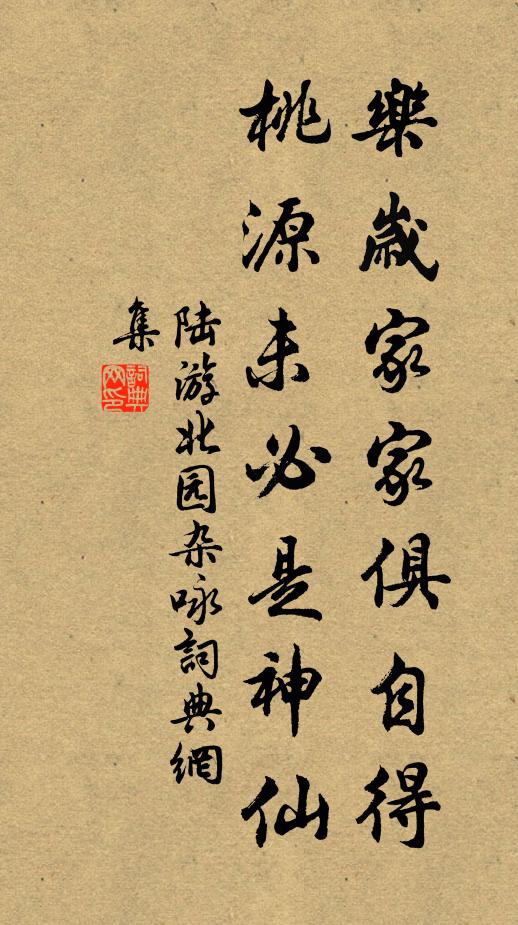 樂歲家家俱自得
桃源未必是神仙
陆游北园杂咏詞典網
集
詞典
网印